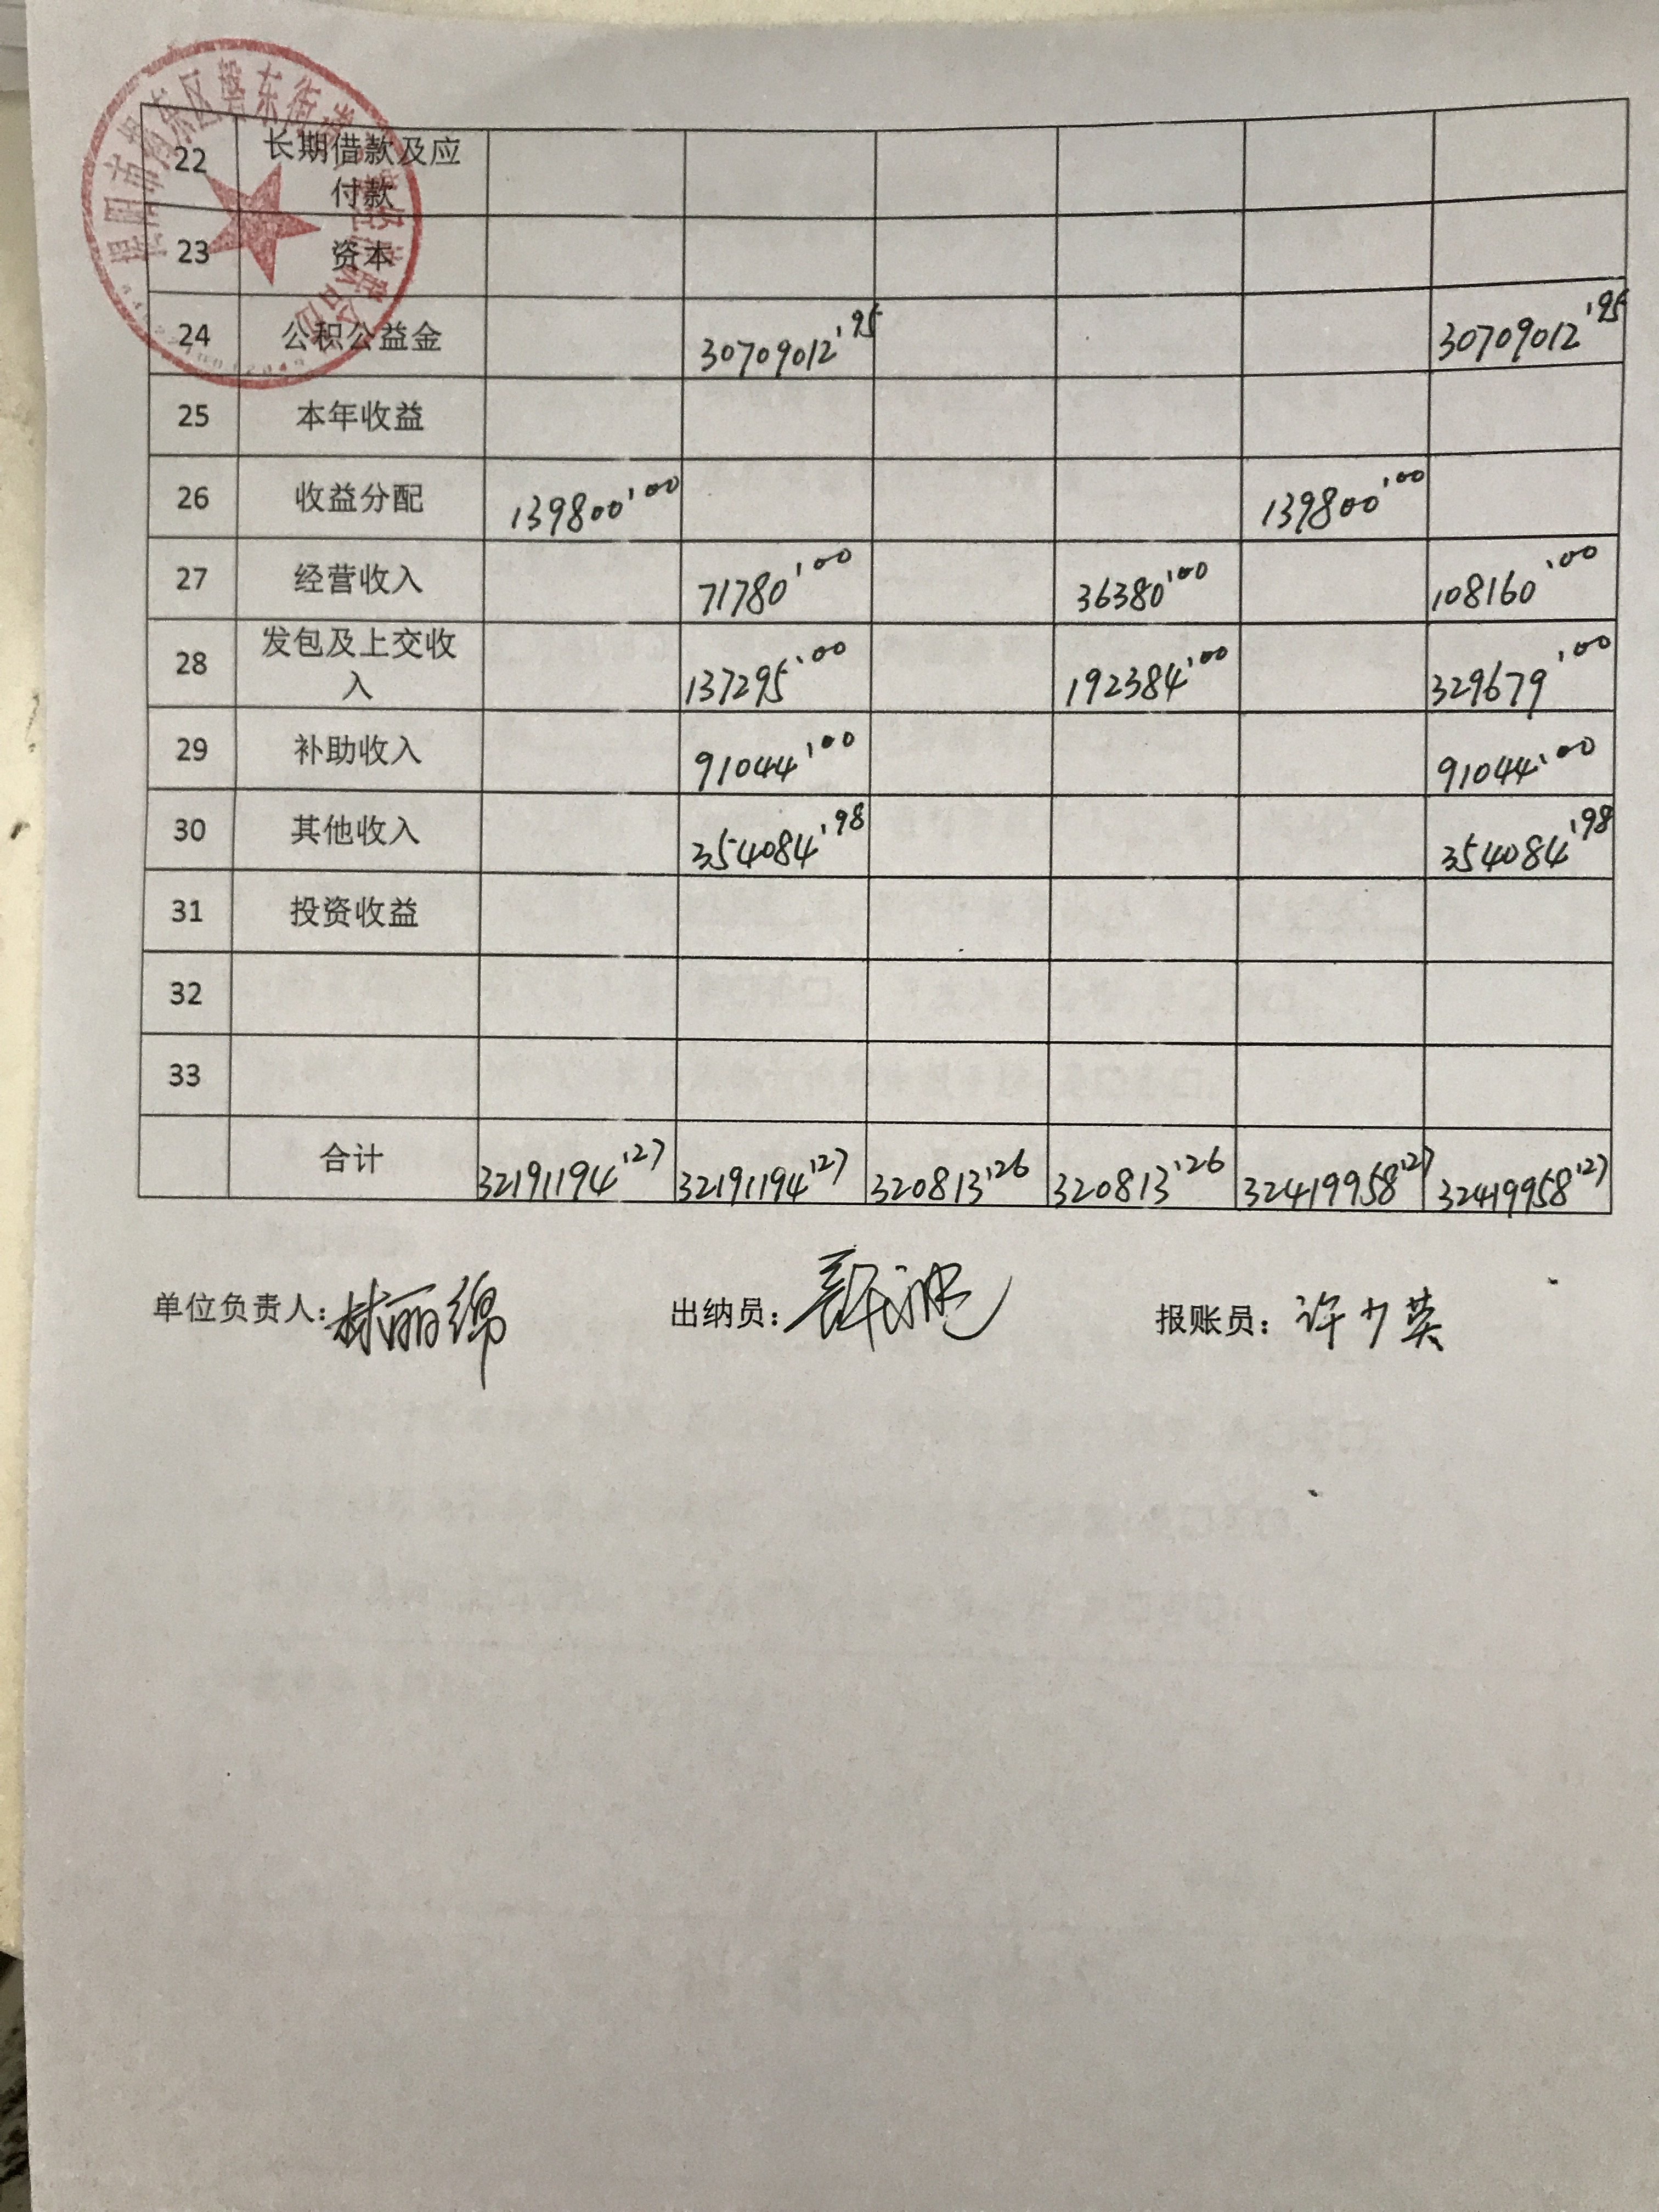 22 长期借款及应
付款
23 资本
24 公积公益金 30709012'95 30709012'95
25 本年收益
26 收益分配 139800'00 139800'00
27 经营收入 71780'00 36380'00 108160'00
28 发包及上交收
入 137295'00 192384'00 329679'00
29 补助收入 91044'00 91044'00
30 其他收入 354084'98 354084'98
31 投资收益
32
33
合计 32191194'27 32191194'27 320813'26 320813'26 32419958'27 32419958'27
单位负责人：林丽绵 出纳员： 报账员：许少英